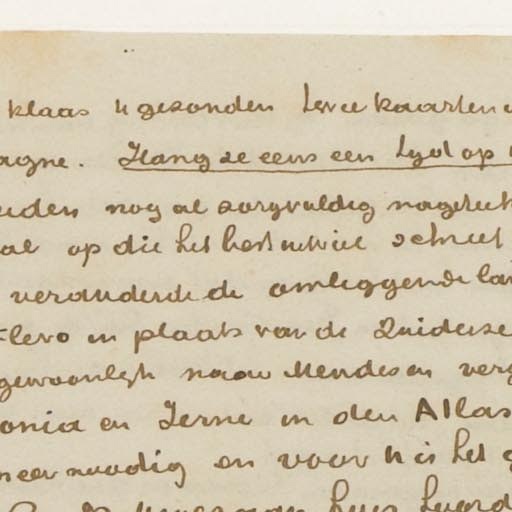 klaas U gezonden twee kaarten
agne. Hang ze eens een tyd op
eiden nog al zorgvuldig nageteek
al op die het hert en wiel schreef
veranderde de omleggende lan
Flevo in plaats van de Zuiderze
gewoonlyk naar Mendes en verg
onia en Ierne in den Atlas
neer noodig en voor U is het g